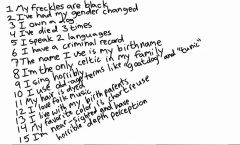 1 My freckles are black
2 I've had my gender changed
3 I own a dog
4 I've died 3 times
5 I speak 2 languages
6 I have a criminal record
7 The name I use is my birth name
8 I'm the only celtic in my family
9 I sing horribly
10 I use old-age terms like "gatdog" and "tunic"
11 My hair is dyed
12 I love folk music
13 I live with my birth parents
14 My favorite color is chartreuse
15 I'm near-sighted and have
horrible depth perception